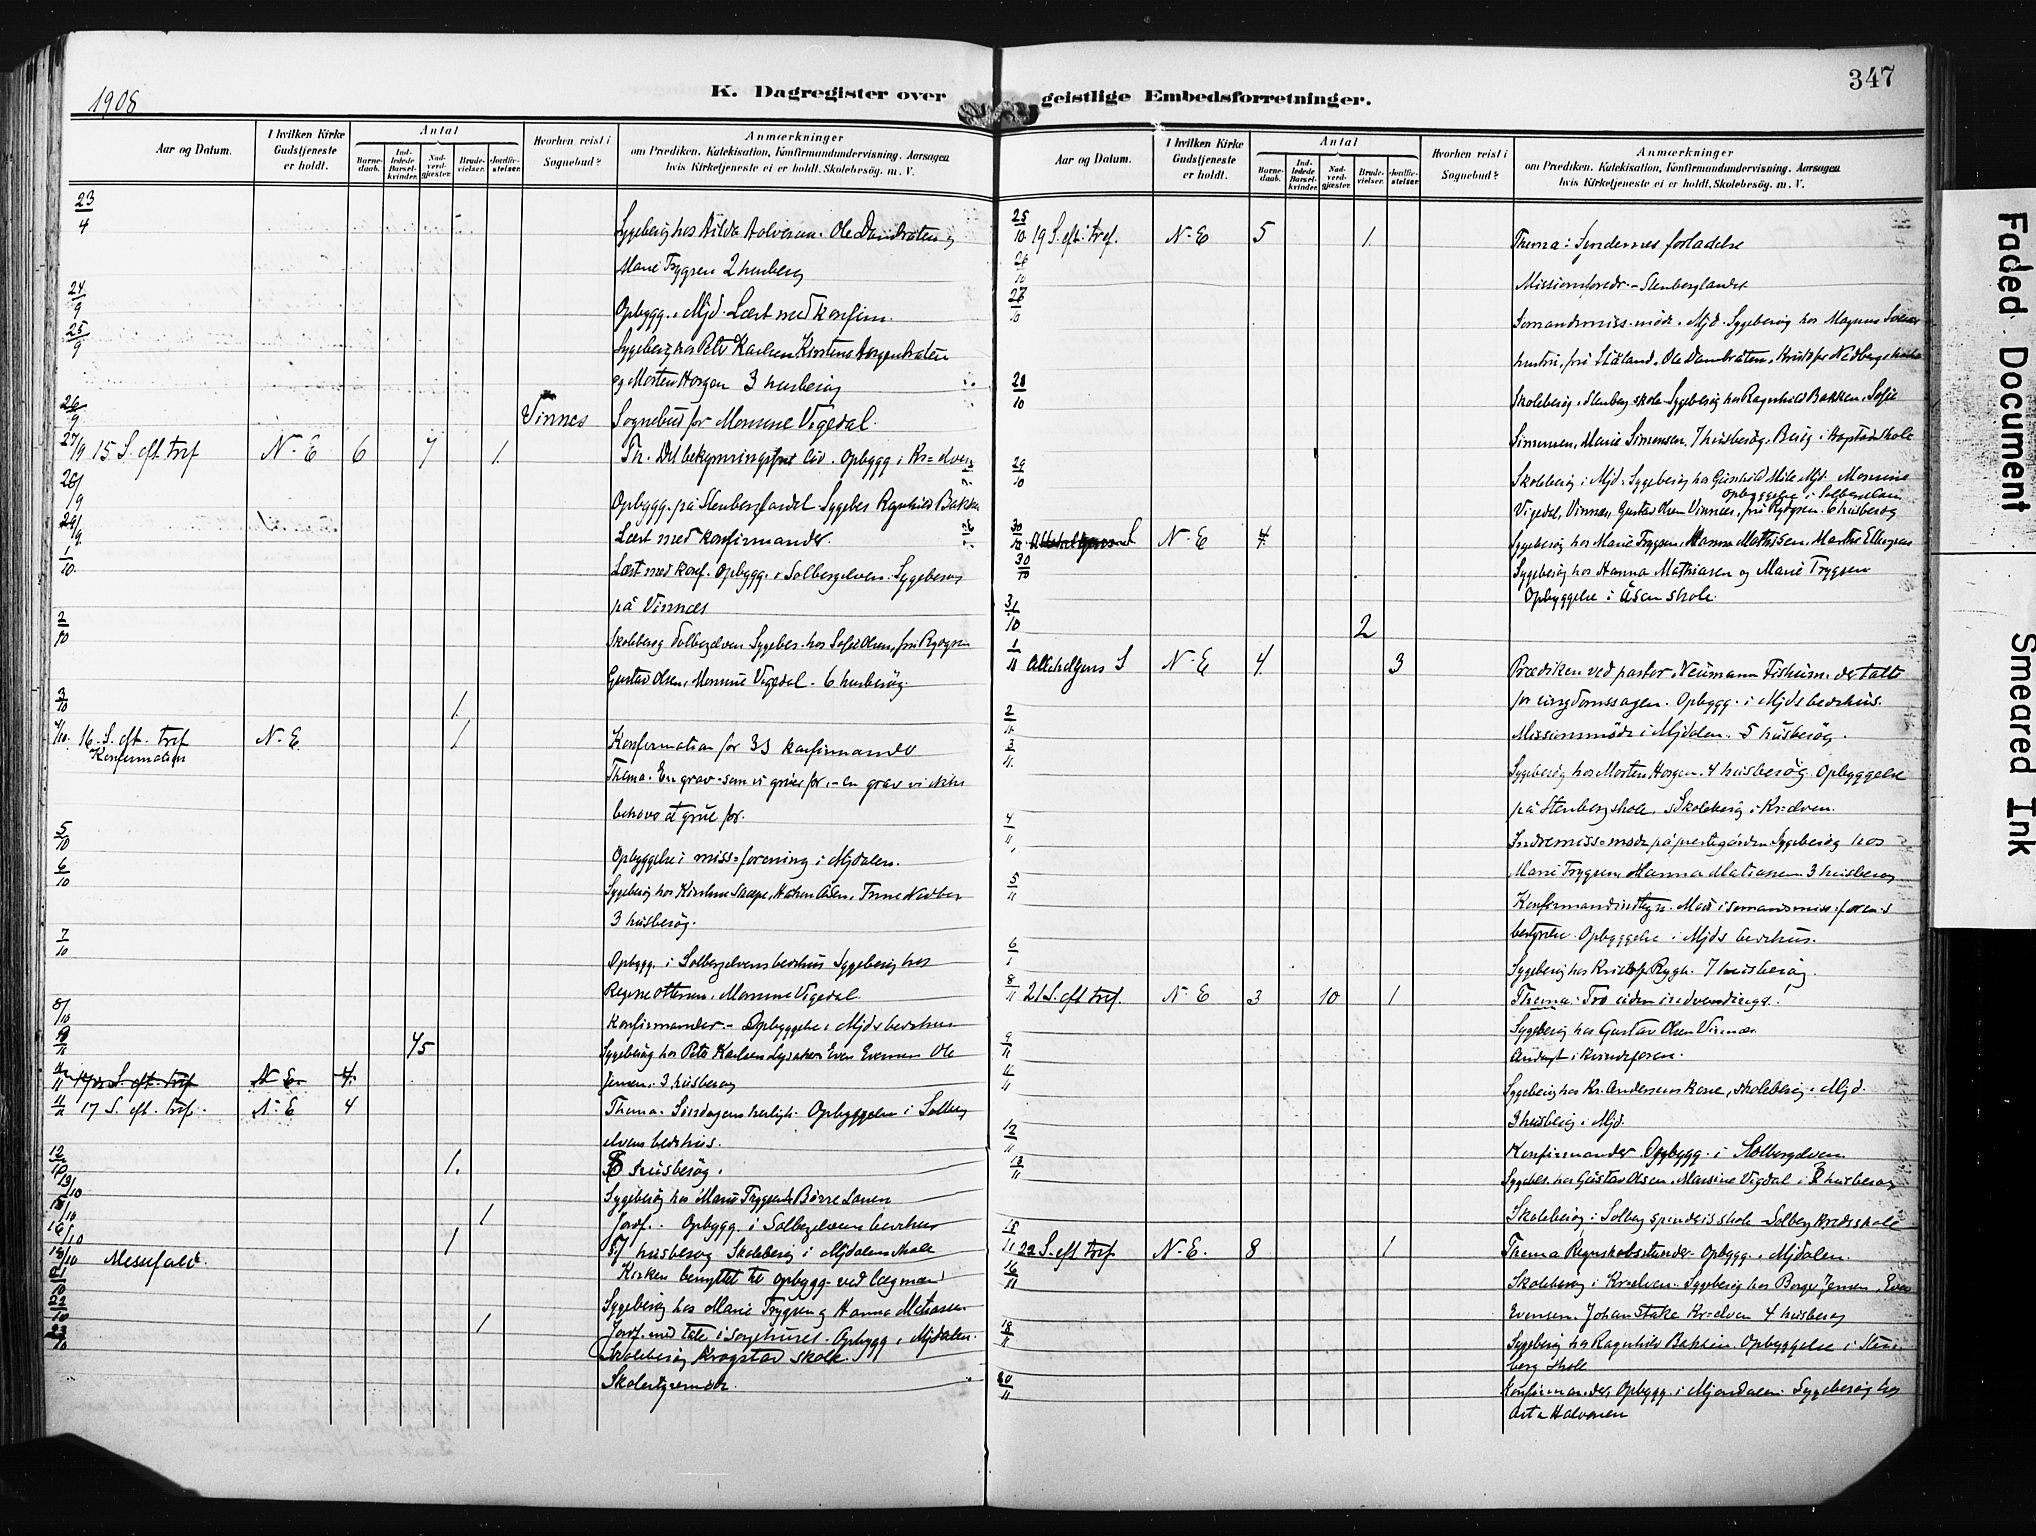 1908
K. Dagregister over
Aar og Datum.
I hvilken Kirke Gudstjeneste er holdt.
Antal
Barnedaab.
Indledede Barselkvinder.
Nadverdgjæster.
Brudevielser.
Jordfæstelser.
Hvorhen reist i Sognebud?
Anmærkninger
om Prædiken, Katekisation, Konfirmandundervisning, Aarsagen
hvis Kirketjeneste ei er holdt, Skolebesög. m. V.
23/4 Sygebesög hos Hilda Halvorsen. Ole Dambråten og
Marie Trygsen 2 husbesög
24/9 Opbygg. i Mjd. Læst med konfirm.
25/9 Sygebesög hos Petr Karlsen Kirstens Horgenbråten
og Morten Horgen 3 husbesög
26/9 Vinnes Sognebud for Monsine Vigedal.
27/9 15. S. eft. tref N-E 6 7 1 Th. Det bekymringsfrie liv. Opbygg i Kr=elven
28/9 Opbygg. på Stenberglandet Sygebes Ragnhild Bakken
Læst med konfirmander.
1/10. Læst med konf. Opbygg. i Solbergelven. Sygebesög
på Vinnes
2/10 Skolebesög Solbergelven Sygebes. hos Sofie Olsen, fru Rygsen
Gustav Olsen, Monsine Vigedal - 6 husbesög.
3/10 1
4/10. 16. S. eft. tref N-E 1 Konfirmation for 33 konfirmander
Konfirmation
Thema. En grav som vi gruer for, - en grav vi ikke
behøve at grue for.
5/10 Opbyggelse i miss=forening i Mjdalen.
6/10
3 husbesøg.
7/10 Opbygg. i Solbergelvens bedehus Sygebesög hos
Regine Ottersen, Monsine Vigedal.
8/10 Konfirmander - Opbyggelse i Mjds bedehus
45 Sygebesög hos Petr Karlsen Even Evensen Ole
Jensen. 3 husbesög
N-E. 4.
17 S. eft. tref. N-E 4 Thema. Søndagens herligh. Opbyggelse i Solberg
elvens bedehus.
12/10 1. husbesög.
13/10 Sygebesög hos Marie Trygsen
15/10 1 Jordf. Opbygg. i Solbergelvens bedehus
16/10 1 husbesög Skolebesög i Mjdalens skole
18/10 Messefald. Kirken benyttet til opbygg. ved lægmand
Sygebesög hos Marie Trygsen og Hanna Matiassen
1 Jordf. med tale i sørgehuset. Opbygg i Mjdalen.
Skolebesög Krogstad skole.
Skolestyremöde.
347
geistlige Embedsforretninger.
Aar og Datum.
I hvilken Kirke Gudstjeneste er holdt.
Antal
Barnedaab.
Indledede Barselkvinder.
Nadverdgjæster.
Brudevielser.
Jordfæstelser.
Hvorhen reist i Sognebud?
Anmærkninger
om Prædiken, Katekisation, Konfirmandundervisning, Aarsagen
hvis Kirketjeneste ei er holdt, Skolebesög. m. V.
25/10 19 S. eft. tref. N-E 5 1 Thema: Syndernes forladelse
26/10 Missionsforedr. - Stenberglandet
27/10 Sømandsmiss. møde i Mjd. Sygebesög hos Magnus
hustru, fru Ståland. Ole Dambråten, Kristofer Nedberg
28/10 Skolebesög i Stenberg skole Sygebesög hos Ragnhild Bakken, Sofie
Simensen, Marie Simensen, 7 husbesög. Besög i Hagatjernskole
29/10 Skolebesög i Mjd. Sygebesög hos Gunhild Mjd. Monsine
Opbyggelse i Solbergelven
Vigedal, Vinnes, Gustav Olsen Vinnes, fru Rygsen. 6 husbesög
30/10 N-E 4 Sygebesög hos Marie Trygsen, Hanna Mathisen, Marthe Ellingsen
30/10 Sygebesög hos Hanna Mathiasen og Marie Trygsen
Opbyggelse i Åsen skole.
31/10 2
1/11 Allehelgens S N-E 4. 3 Prædiken ved pastor Neumann Fiskum. der talte
for ungdomssagen. Opbygg. i Mjds bedehus.
2/11. Missionsmøde i Mjdalen. 5 husbesøg.
3/11. Sygebesög hos Morten Horgen. 4 husbesøg. Opbyggelse
på Stenberg skole. Skolebesög i Kr=elven.
4/11 Indremiss=møde på prestegården Sygebesög hos
Marie Trygsen, Hanna Matiassen 3 husbesög
5/11 Konfirmandindtegn. Møde i sømandsmiss. foren.s
bestyrelse. Opbyggelse i Mjds bedehus.
6/ Sygebesög hos Kristofr Rygh. 7 husbesög.
8/11 21 S. eft tref. N-E 3 10 1 Thema: Tro uden
Sygebesög hos Gustav Olsen Vinnes.
9/11 Andagt i kvindeforen.
11/11 Sygebesög hos Kr. Andersens kone, skolebesög i Mjd.
3 husbesög i Mjd.
12/11 Konfirmander. Opbygg. i Solbergelven
13/11 Sygebes. hos Gustav Olsen, Monsine Vigdal i 3 husbesøg
Skolebesög i Solberg spinderis skole Solberg kredsskole
15/11 22 S. eft tref N-E. 8 1 Thema Regnskabsstunder Opbygg. i Mjdalen.
16/11 Skolebesög i Kr=elven. Sygebesög hos Borge Jensen, Even
Evensen, Johan Stake Kr=elven 4 husbesög
18/11 Sygebesög hos Ragnhild Bakken. Opbyggelse i Sten
berg skole
20/11 Konfirmander, Opbygg. i Mjøndalen Sygebesög hos
Halvorsen
Faded Document
Smeared Ink